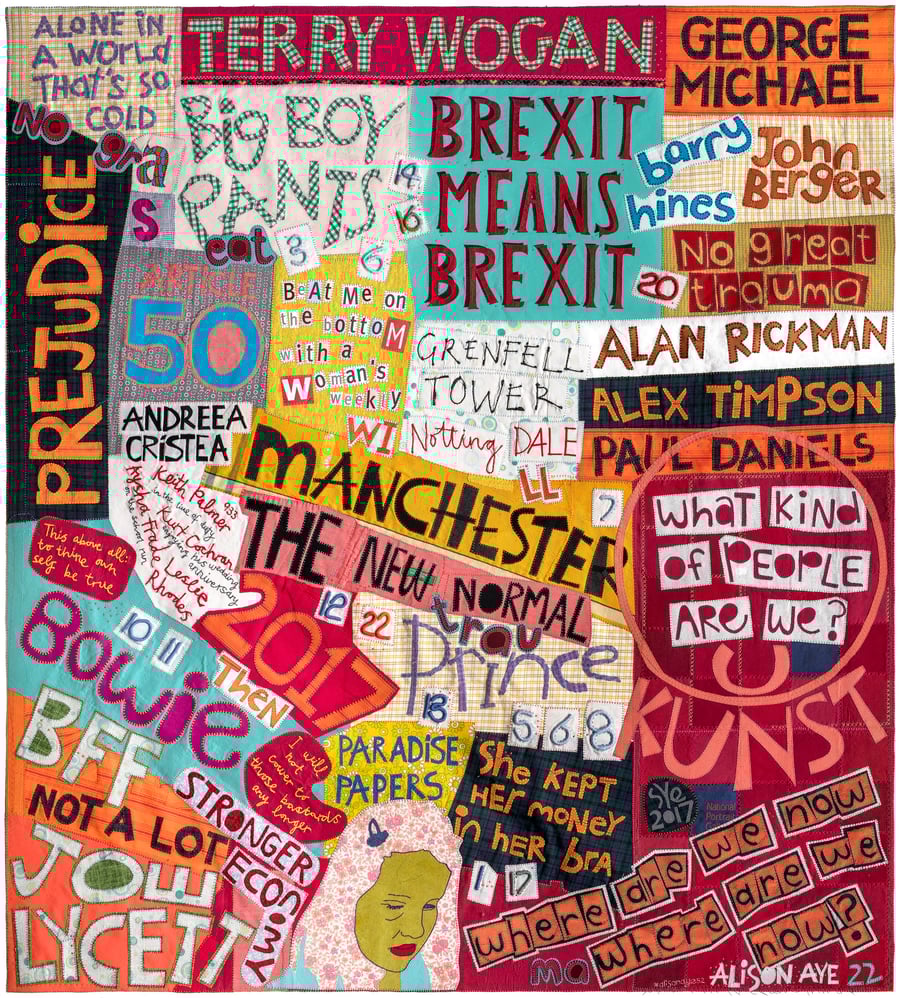 ALONE IN
A WORLD
THAT'S SO
COLD
TERRY WOGAN
GEORGE
MICHAEL
No
gra
S
eat
BiG BOY
PANTS
14
16
3
6
BREXIT
MEANS
BREXIT
barry
hines
John
BERGER
No great
trauma
20
PREJUDiCE
ARTICLE
50
BeAt Me on
the bottoM
with a
Woman's
weekly
WI
GRENFELL
TOWER
Notting DALE
LL
ALAN RICKMAN
ALEX TiMPSON
PAUL DANIELS
ANDREEA
CRISTEA
Keith Palmer
933
in the line of duty
Kurt Cochran
enjoying his wedding
anniversary
Aysha Frade
on the school run
Leslie
Rhodes
MANCHESTER
7
THE NEW NORMAL
WHAT KiND
oF PEOPLE
ARE We?
This above all:
to thine own
self be true
2017
12
22
trau
Prince
13
5 6 8
10
11
Bowie
THEN
U
KUNST
BFF
NOT A LOT
I will
not
cower to
those bastards
any longer
PARADiSE
PAPERS
She KEPT
HER money
in her bra
1
17
STRONGER
ECONOMY
JOE
LYCETT
SYE
2017
National
Portrait
where are we now
where are we
now?
ma
ALiSON AYE 22